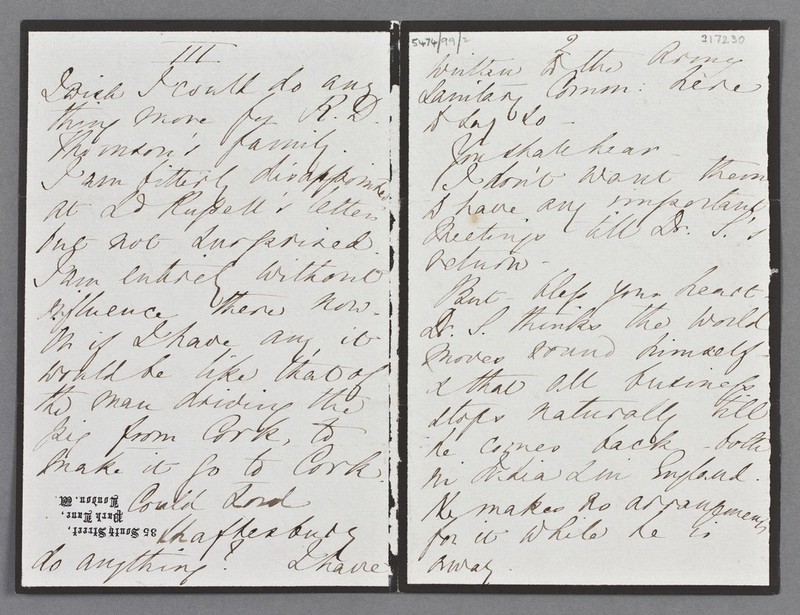 III
I wish I could do any
thing more for R.D.
Thomson's family.
I am utterly disappointed
at Ld Russell's letter
but not surprised.
I am entirely without
influence there now.
Or if I have any, it
would be like that of
the man driving the
pig from Cork, to
make it go to Cork.
Could Lord
Shaftesbury
do anything? I have
35 South Street,
Park Lane,
London. W.
5474/99/2
2
317230
written to the Army
Sanitary Comm: here
to say so -
You shall hear -
I don't want them
to have any important
Meetings till Dr. S.'s
return -
But - bless your heart -
Dr. S. thinks the world
moves round himself -
& that all business
stops naturally till
he comes back - both
in India & in England.
He makes no arrangements
for it while he is
away.